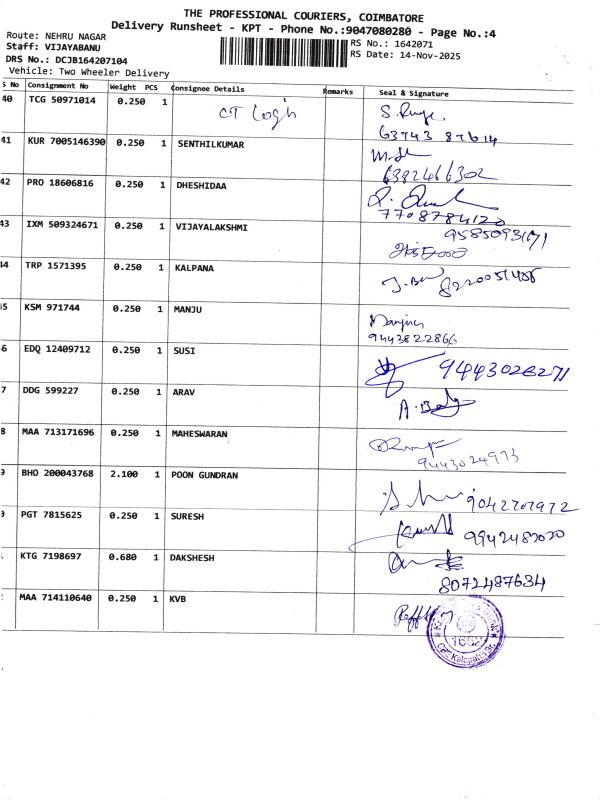 THE PROFESSIONAL COURIERS, COIMBATORE
Delivery Runsheet - KPT - Phone No.:9047080280 - Page No.:4
Route: NEHRU NAGAR
RS No.: 1642071
Staff: VIJAYABANU
RS Date: 14-Nov-2025
DRS No.: DCJB164207104
Vehicle: Two Wheeler Delivery
S No Consignment No Weight PCS Consignee Details Remarks Seal & Signature
40 TCG 50971014 0.250 1 CT Login
63743 87614
41 KUR 7005146390 0.250 1 SENTHILKUMAR
6382466302
42 PRO 18606816 0.250 1 DHESHIDAA
7708784120
43 IXM 509324671 0.250 1 VIJAYALAKSHMI
9585093171
44 TRP 1571395 0.250 1 KALPANA
45 KSM 971744 0.250 1 MANJU
Manjula
9443822866
6 EDQ 12409712 0.250 1 SUSI 9443026271
7 DDG 599227 0.250 1 ARAV
8 MAA 713171696 0.250 1 MAHESWARAN
9443024973
9 BHO 200043768 2.100 1 POON GUNDRAN
9042707972
PGT 7815625 0.250 1 SURESH
9942482020
KTG 7198697 0.680 1 DAKSHESH
8072487634
MAA 714110640 0.250 1 KVB
1662